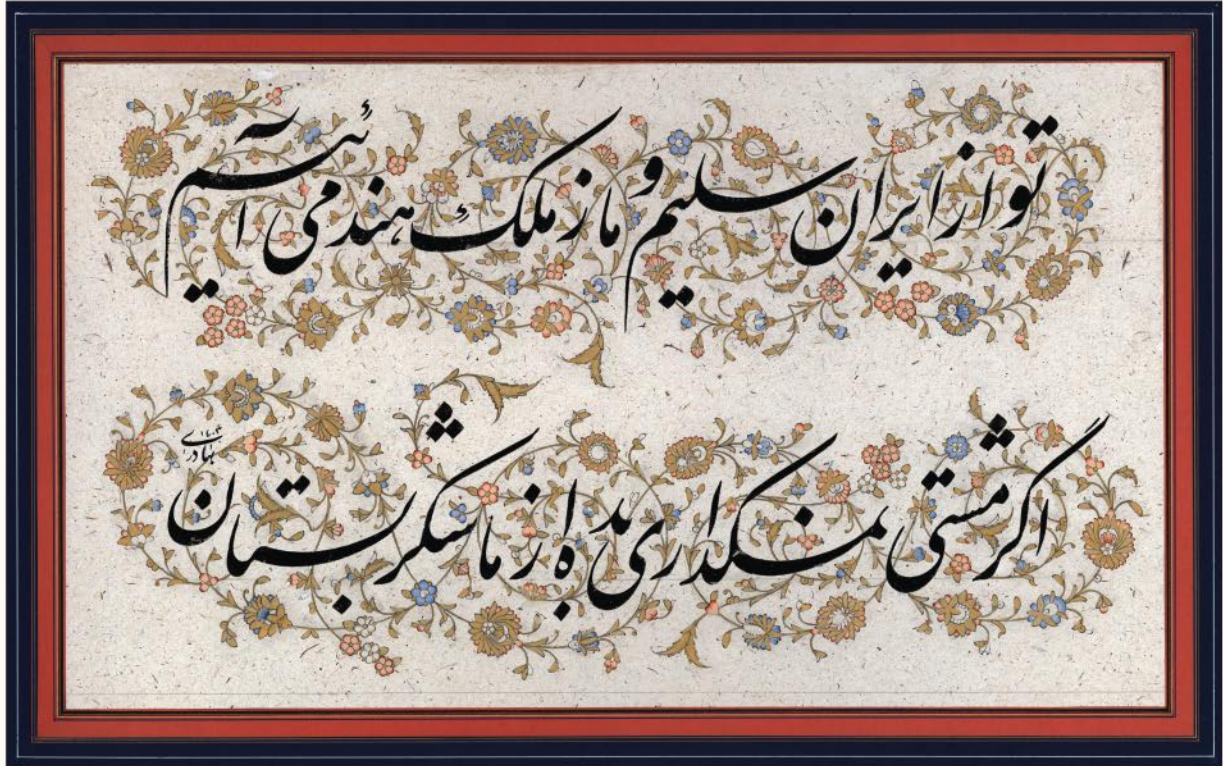 تو از ایران سلیم و ما ز ملک هند می آئیم
اگر مشتی نمکداری بده از ما شکر بستان
بهادری